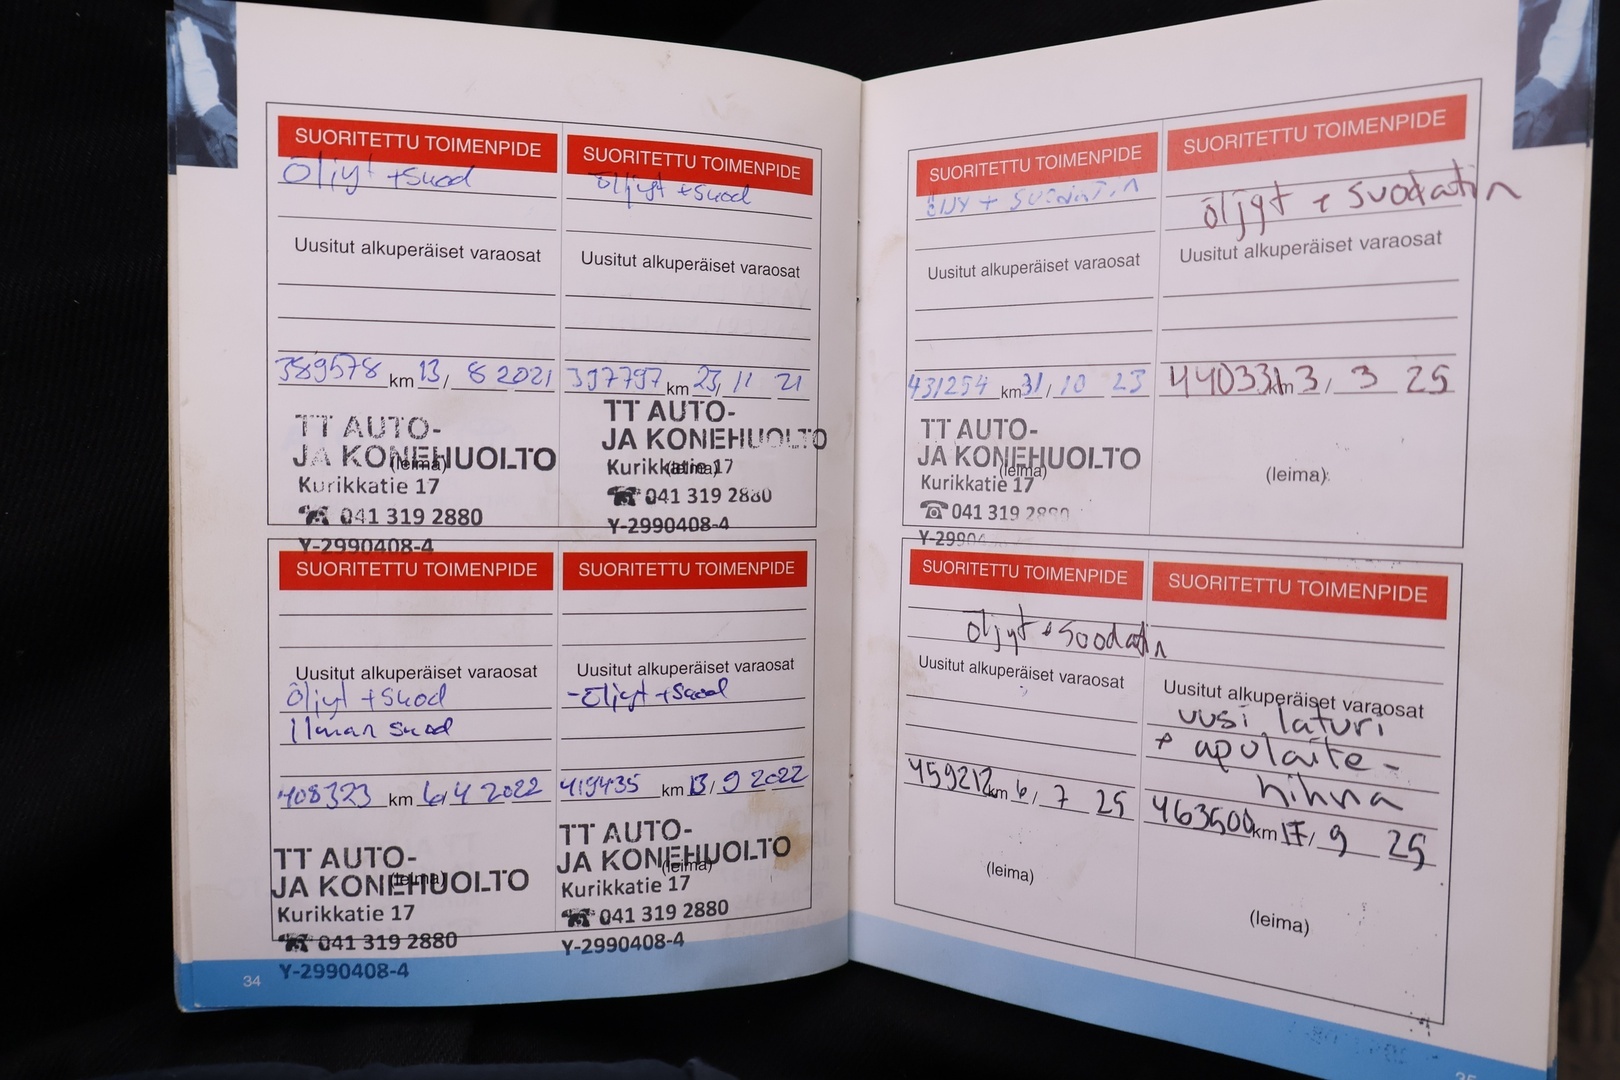 SUORITETTU TOIMENPIDE
Öljyt +suod
Uusitut alkuperäiset varaosat
389578 km 13/ 8 2021
TT AUTO-
JA KONEHUOLTO
(leima)
Kurikkatie 17
☎ 041 319 2880
Y-2990408-4
SUORITETTU TOIMENPIDE
öljyt +suod
Uusitut alkuperäiset varaosat
397797 km 23/ 11 21
TT AUTO-
JA KONEHUOLTO
Kurikkatie 17
(leima)
☎ 041 319 2880
Y-2990408-4
SUORITETTU TOIMENPIDE
Uusitut alkuperäiset varaosat
öljyt +suod
Ilman suod
408323 km 6/4 2022
TT AUTO-
JA KONEHUOLTO
(leima)
Kurikkatie 17
☎ 041 319 2880
Y-2990408-4
SUORITETTU TOIMENPIDE
Uusitut alkuperäiset varaosat
-öljyt +suod
419435 km 13/ 9 2022
TT AUTO-
JA KONEHUOLTO
(leima)
Kurikkatie 17
☎ 041 319 2880
Y-2990408-4
34
SUORITETTU TOIMENPIDE
öljy + suodatin
Uusitut alkuperäiset varaosat
431254 km 31/ 10 23
TT AUTO-
JA KONEHUOLTO
(leima)
Kurikkatie 17
☎ 041 319 2880
Y-29904
SUORITETTU TOIMENPIDE
öljyt + suodatin
Uusitut alkuperäiset varaosat
440331 km 3/ 3 25
(leima)
SUORITETTU TOIMENPIDE
öljyt + suodatin
Uusitut alkuperäiset varaosat
459212 km 6/ 7 25
(leima)
SUORITETTU TOIMENPIDE
Uusitut alkuperäiset varaosat
uusi laturi
+ apulaite-
hihna
463500 km 17/ 9 25
(leima)